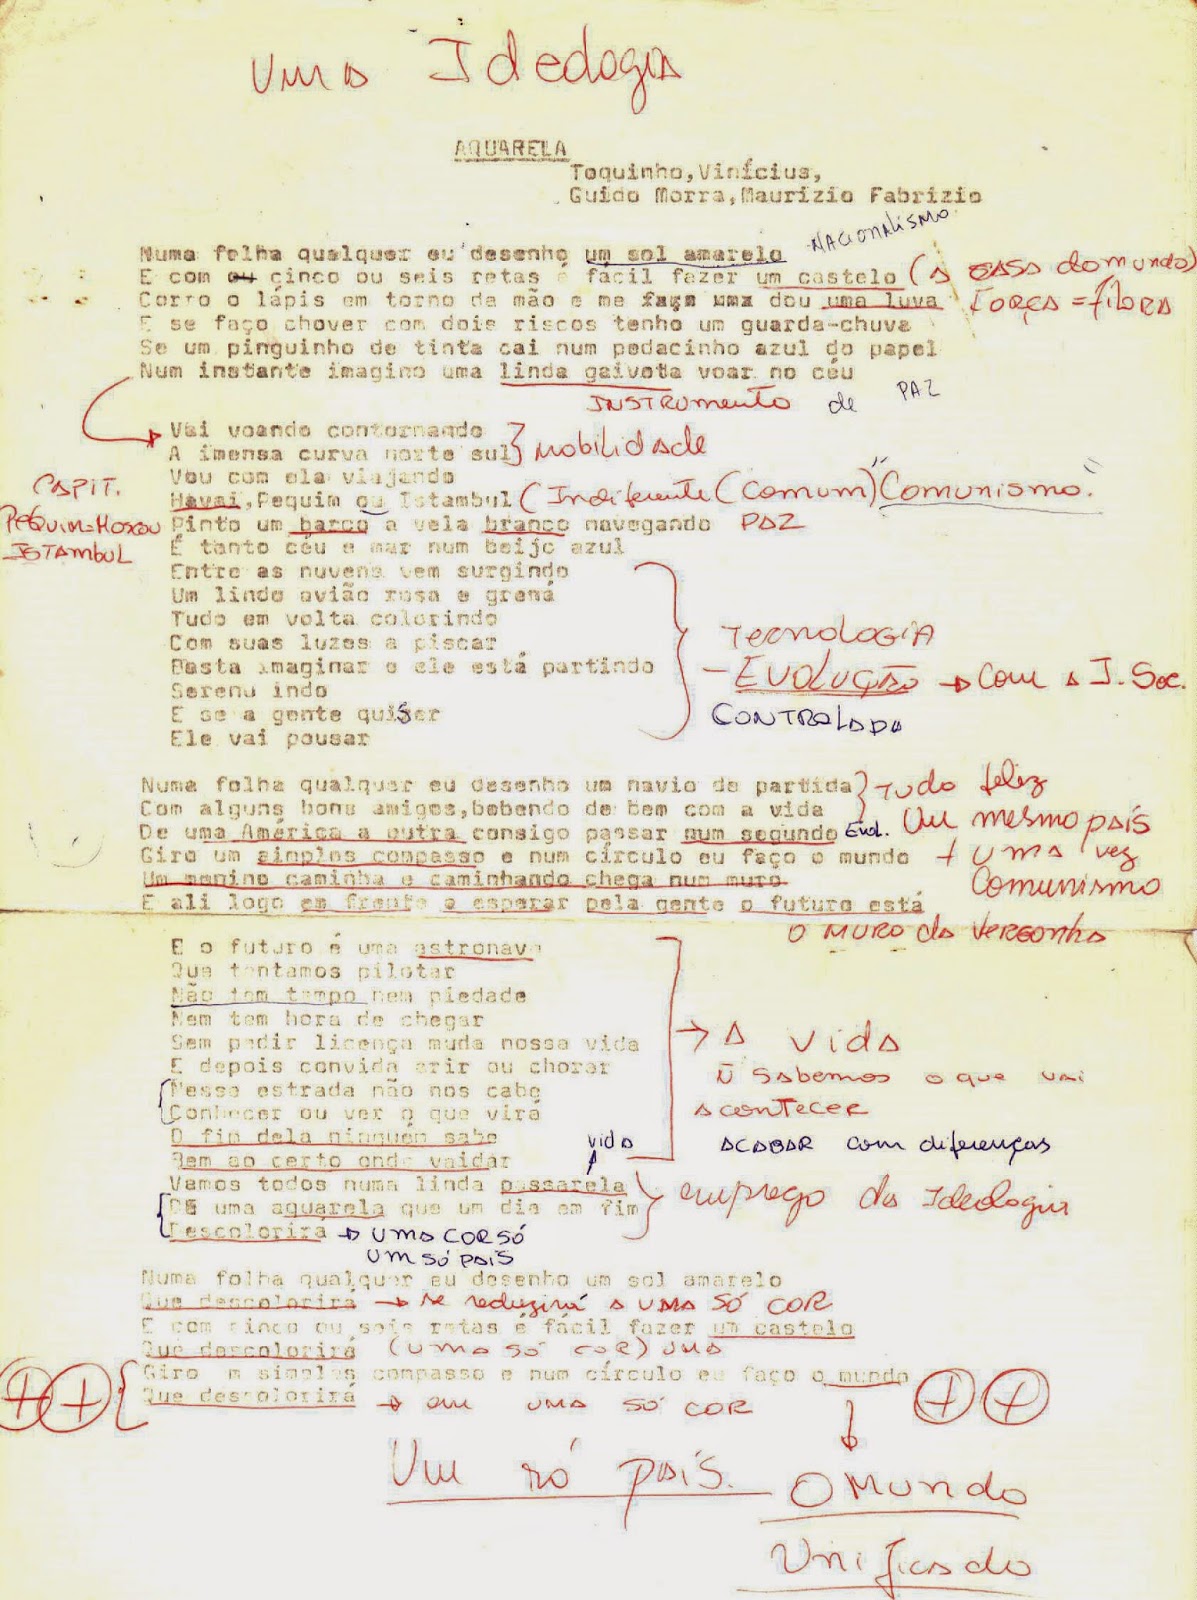 Uma Ideologia
AQUARELA
Toquinho,Vinícius,
Guido Morra,Maurizio Fabrizio
NACIONALISMO
Numa folha qualquer eu desenho um sol amarelo
E com ou cinco ou seis retas é fácil fazer um castelo (A CASA do mundo)
Corro o lápis em torno da mão e me faço uma dou uma luva FORÇA = fibra
E se faço chover com dois riscos tenho um guarda-chuva
Se um pinguinho de tinta cai num pedacinho azul do papel
Num instante imagino uma linda gaivota voar no céu
INSTRUMENTO de PAZ
Vai voando contornando
A imensa curva norte sul} Mobilidade
Vou com ela viajando
CAPIT.
Havai,Pequim ou Istambul (Indiferente (comum) "Comunismo."
PEQUIM=Moscou
Pinto um barco a vela branco navegando PAZ
ISTAMBUL
É tanto céu e mar num beijo azul
Entre as nuvens vem surgindo
Um lindo avião rosa e grená
Tudo em volta colorindo
Com suas luzes a piscar
TECNOLOGIA
Basta imaginar e ele está partindo
- EVOLUÇÃO → com a I. Soc.
Sereno indo
E se a gente quiser
CONTROLADA
Ele vai pousar
Numa folha qualquer eu desenho um navio de partida} Tudo feliz
Com alguns bons amigos,bebendo de bem com a vida
De uma América a outra consigo passar num segundo Evol. Um mesmo país
Giro um simples compasso e num círculo eu faço o mundo + uma vez
Um menino caminha e caminhando chega num muro Comunismo
E ali logo em frente a esperar pela gente o futuro está
O MURO da VERGONHA
E o futuro é uma astronave
Que tentamos pilotar
Não tem tempo nem piedade
Nem tem hora de chegar
Sem pedir licença muda nossa vida → A vida
E depois convida arir ou chorar
Ñ sabemos o que vai
Nessa estrada não nos cabe
acontecer
Conhecer ou ver o que virá
O fim dela ninguém sabe
vida
ACABAR com diferenças
Bem ao certo onde vaidar
Vamos todos numa linda passarela
} emprego da Ideologia
De uma aquarela que um dia em fim
Descolorirá → UMA COR SÓ
UM SÓ PAÍS
Numa folha qualquer eu desenho um sol amarelo
Que descolorirá → se reduzirá a UMA SÓ COR
E com cinco ou seis retas é fácil fazer um castelo
Que descolorirá (UMA SÓ COR) UMA
Giro m simples compasso e num círculo eu faço o mundo
++ Que descolorirá → em UMA SÓ COR ++
Um só país. O Mundo
Unificado